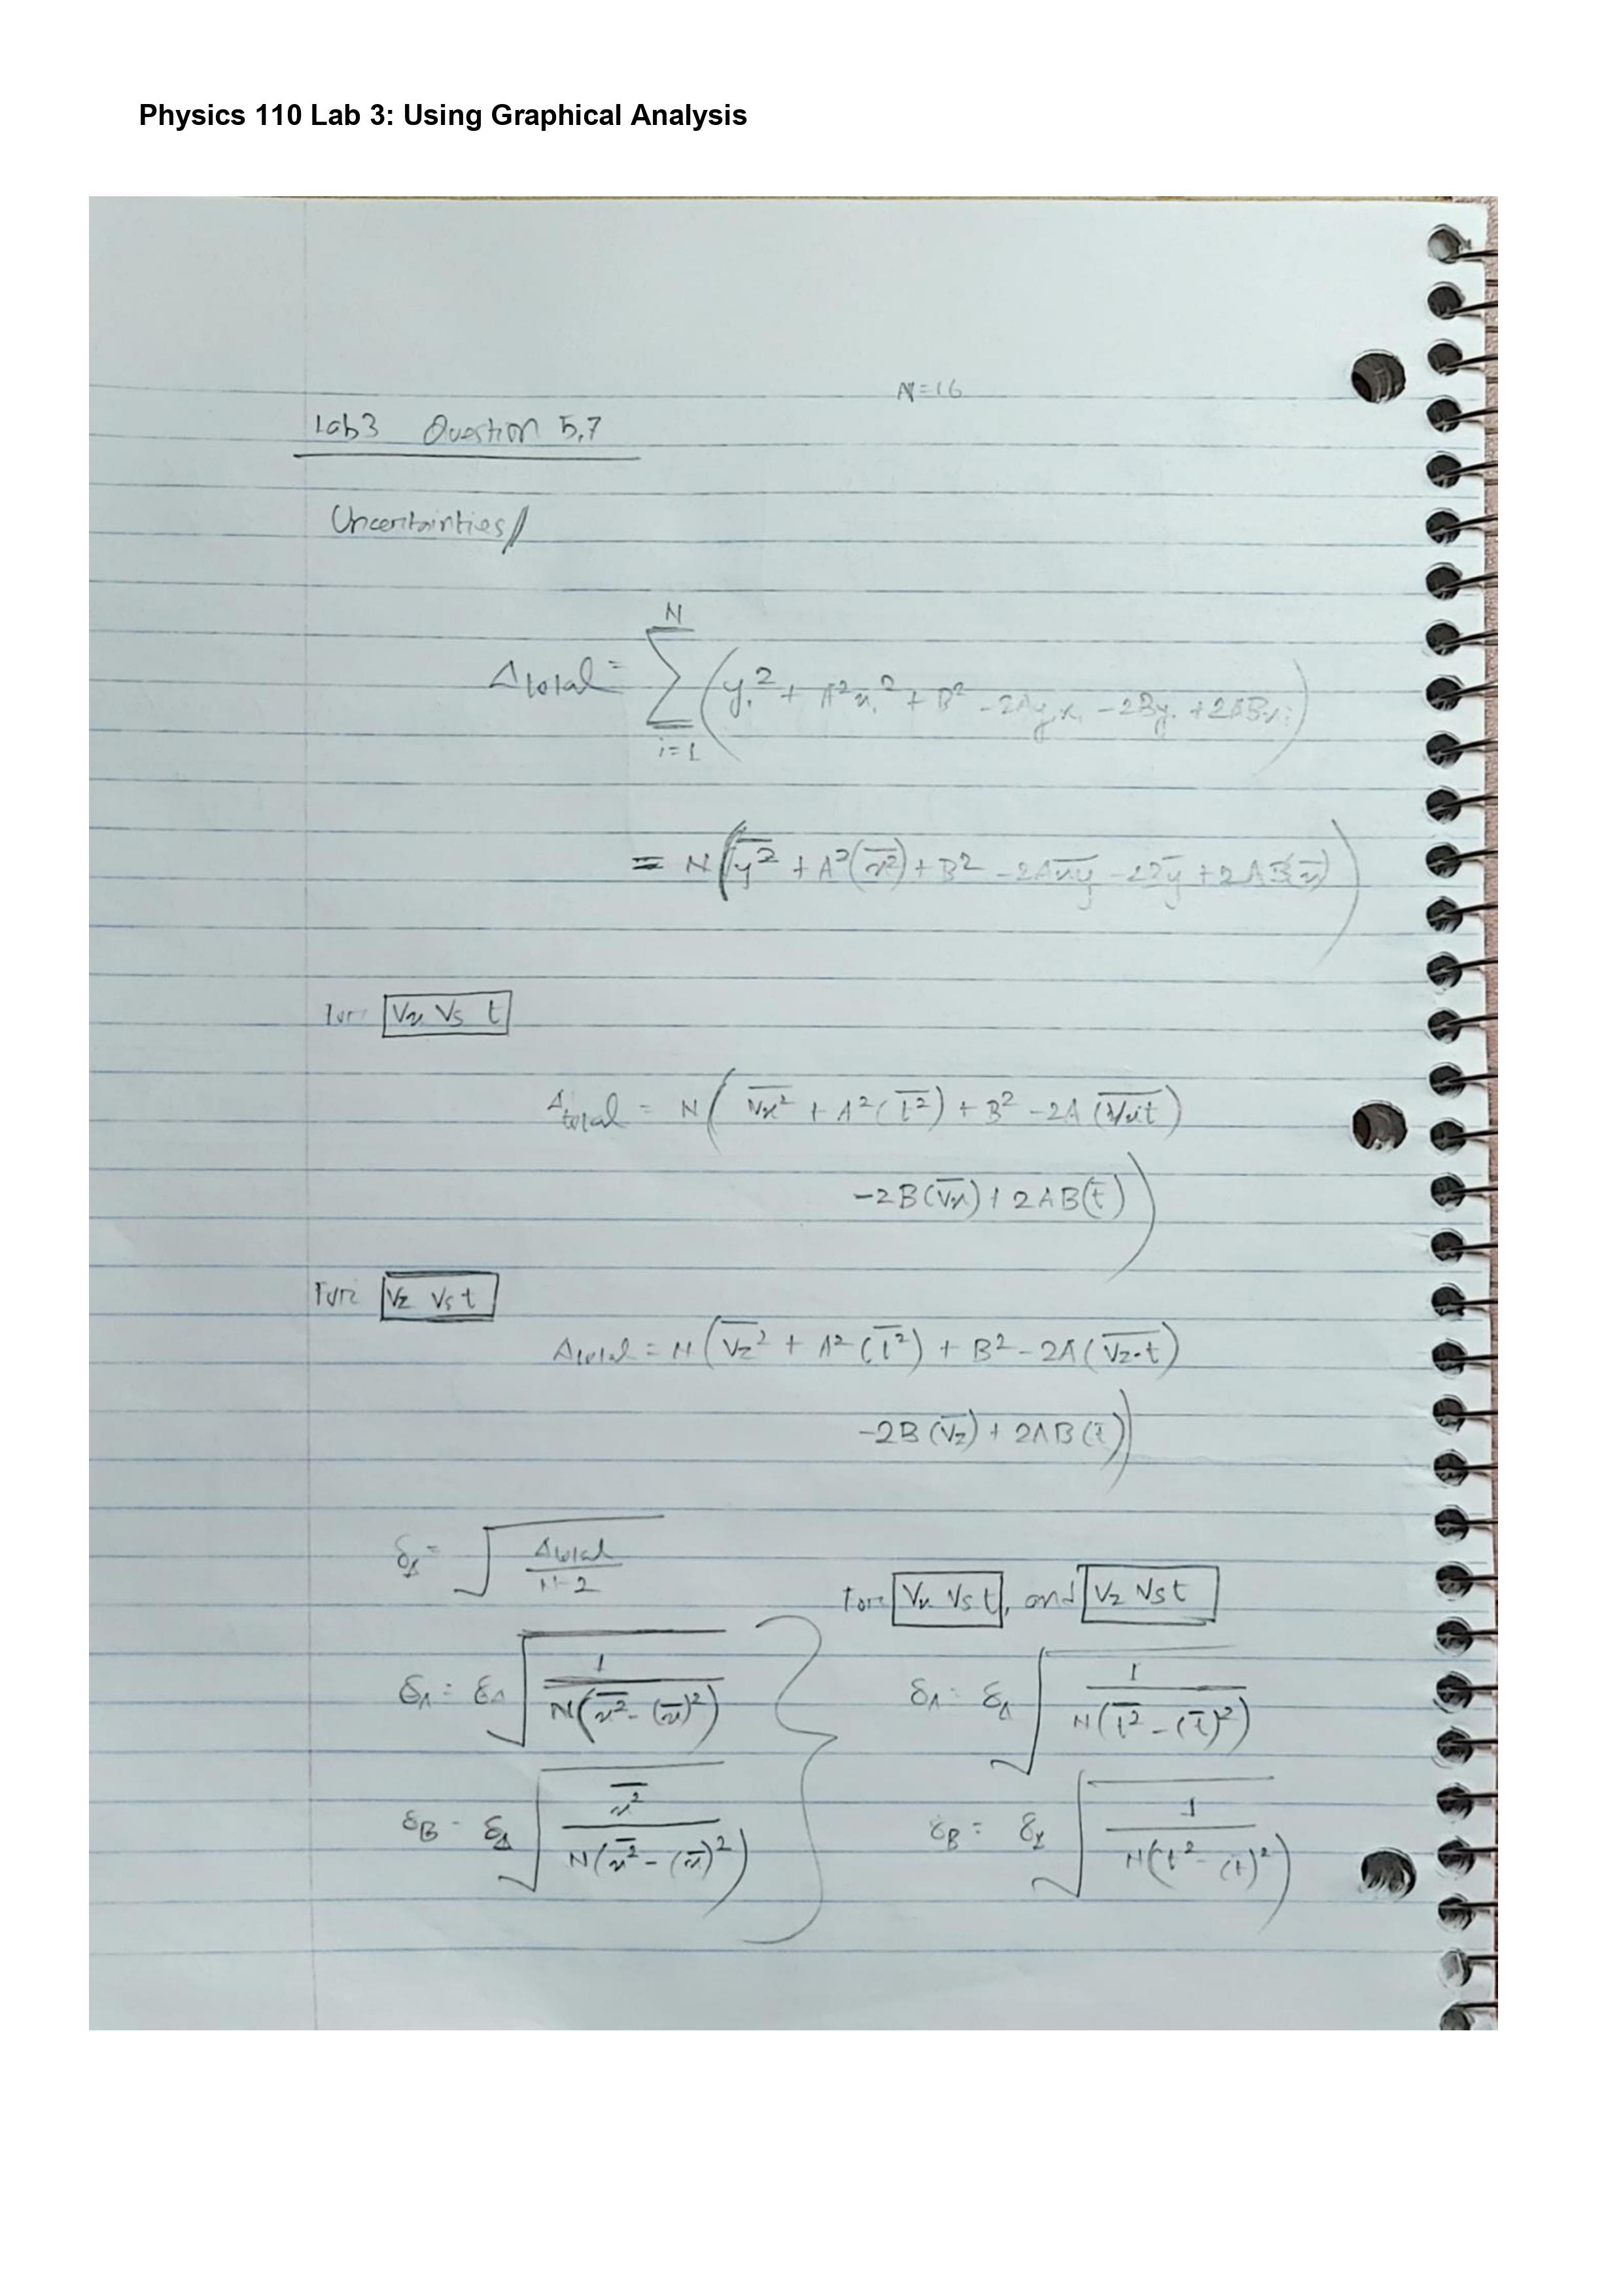 Physics 110 Lab 3: Using Graphical Analysis
N=16
Lab3 Question 5,7
Uncertainties//
N
Δtotal = Σ (yᵢ² + A²xᵢ² + B² - 2Ayᵢxᵢ - 2Byᵢ + 2ABxᵢ)
i=1
= N(y̅²̅ + A²(x̅²̅) + B² - 2Ax̅y̅ - 2By̅ + 2AB(x̅))
For: Vx Vs t
Δtotal = N(V̅x̅²̅ + A²(t̅²̅) + B² - 2A(V̅x̅t̅)
-2B(V̅x̅) + 2AB(t̅))
For: Vz Vs t
Δtotal = N(V̅z̅² + A²(t̅²̅) + B² - 2A(V̅z̅·̅t̅)
-2B(V̅z̅) + 2AB(t̅))
δΔ = √(Δtotal / N-2)
For: Vx Vs t, and Vz Vs t
δA = δΔ √(1 / N(x̅²̅ - (x̅)²)) δA = δΔ √(1 / N(t̅²̅ - (t̅)²))
δB = δΔ √(x̅²̅ / N(x̅²̅ - (x̅)²)) δB = δΔ √(1 / N(t² - (t)²))